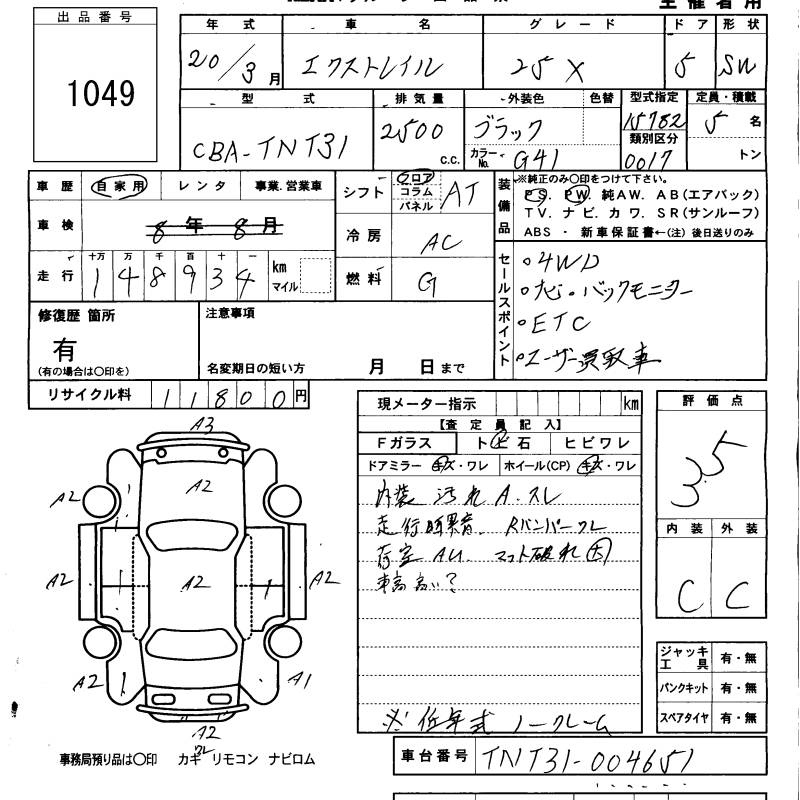 出品番号
1049
主催者用
年式 車名 グレード ドア 形状
20/3月 エクストレイル 25X 5 SW
型式 排気量 外装色 色替 型式指定 定員・積載
CBA-TNT31 2500 c.c. ブラック 15782 5名
カラーNo. G41 類別区分 0017 トン
車歴 自家用 レンタ 事業.営業車
シフト フロア コラム パネル AT
装備品 ※純正のみ〇印をつけて下さい。
PS. PW. 純AW. AB(エアバック)
TV. ナビ. カワ. SR(サンルーフ)
ABS ・ 新車保証書←(注) 後日送りのみ
車検 8年8月
冷房 AC
走行 十万 万 千 百 十 一
148934 km マイル
燃料 G
セールスポイント
・4WD
・ナビ・バックモニター
・ETC
・ユーザー買取車
修復歴 箇所
有
(有の場合は〇印を)
注意事項
名変期日の短い方 月 日まで
リサイクル料 11800円
現メーター指示 km
【査定員記入】
Fガラス トビ石 ヒビワレ
ドアミラー キズ・ワレ ホイール(CP) キズ・ワレ
内装 汚れ A.スレ
Rバンパーワレ
マット破れ 大
車高高い?
※低年式 ノークレーム
評価点
3.5
内装 外装
C C
ジャッキ工具 有・無
パンクキット 有・無
スペアタイヤ 有・無
A3
A2
A2
A2 A2 A2
A2 A1
A2
ワレ
事務局預り品は〇印 カギ リモコン ナビロム
車台番号 TNT31-004651